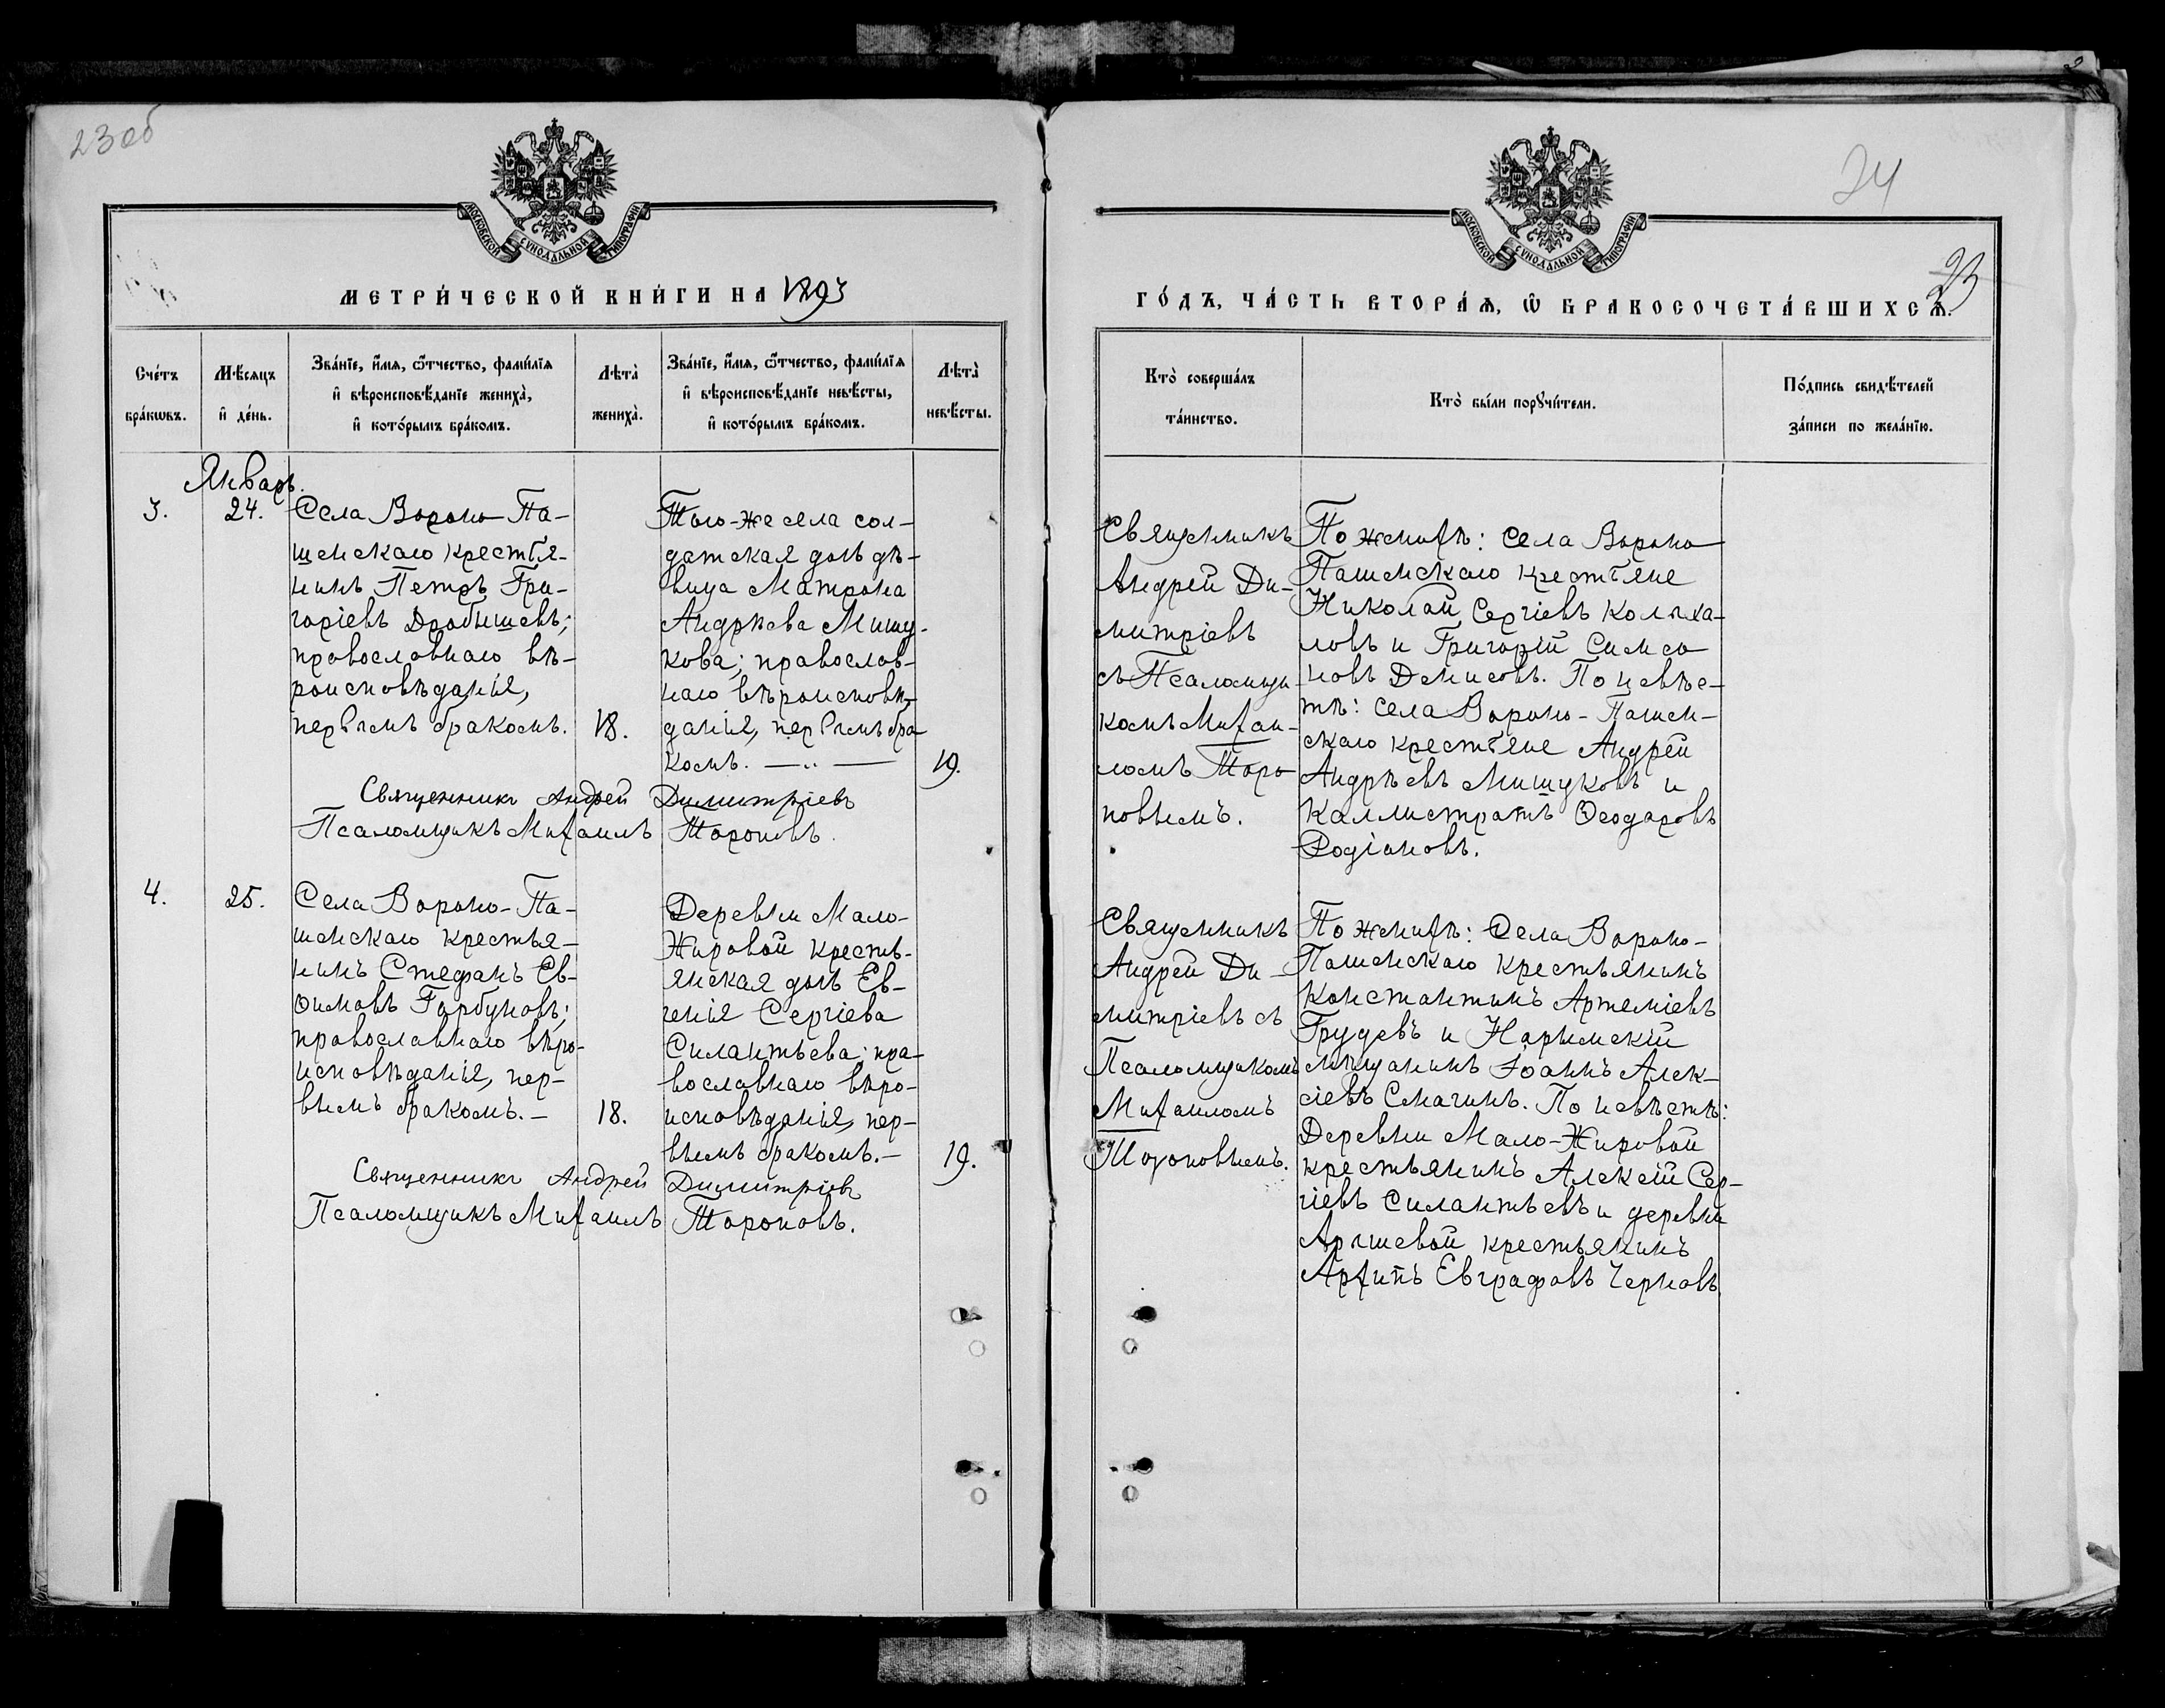 23 об
МОСКОВСКОЙ СѴНОДАЛЬНОЙ ТИПОГРАФІИ
МЕТРИ́ЧЕСКОЙ КНИ́ГИ НА 1893
Сче́тъ бра́кѡвъ.
Мѣ́сяцъ и҆ де́нь.
Зва́нїе, и҆́мѧ, ѻ҆́тчество, фами́лїѧ
и҆ вѣроисповѣ́данїе жениха̀,
и҆ кото́рымъ бра́комъ.
Лѣта̀ жениха̀.
Зва́нїе, и҆́мѧ, ѻ҆́тчество, фами́лїѧ
и҆ вѣроисповѣ́данїе невѣ́сты,
и҆ кото́рымъ бра́комъ.
Лѣта̀ невѣ́сты.
Январь.
3.
24.
Села Вороно-Па-
шенскаго крестья-
нинъ Петръ Гри-
горіевъ Дробышевъ;
православнаго вѣ-
роисповѣданія,
первымъ бракомъ.
18.
Того-же села сол-
датская дочь дѣ-
вица Матрона
Андреева Мишу-
кова; православ-
наго вѣроисповѣ-
данія, первымъ бра-
комъ.
19.
Священникъ Андрей Димитріевъ
Псаломщикъ Михаилъ Тороповъ.
4.
25.
Села Вороно-Па-
шенскаго крестья-
нинъ Стефанъ Ев-
ѳимовъ Горбуновъ;
православнаго вѣро-
исповѣданія, пер-
вымъ бракомъ.
18.
Деревни Мало-
Жировой кресть-
янская дочь Ев-
генія Сергіева
Силантьева; пра-
вославнаго вѣро-
исповѣданія, пер-
вымъ бракомъ.
19.
Священникъ Андрей Димитріевъ
Псаломщикъ Михаилъ Тороповъ.
24
23
МОСКОВСКОЙ СѴНОДАЛЬНОЙ ТИПОГРАФІИ
ГО́ДЪ, ЧА́СТЬ ВТОРА́Ѧ, Ѡ҆ БРАКОСОЧЕТА́ВШИХСѦ.
Кто̀ соверша́лъ
та́инство.
Кто̀ бы́ли порꙋчи́тели.
По́дпись свидѣ́телей
за́писи по жела́нїю.
Священникъ
Андрей Ди-
митріевъ
съ Псаломщи
комъ Михаи-
ломъ Торо
повымъ.
По женихѣ: села Вороно
Пашенскаго крестьяне
Николай Сергіевъ Коляха-
ловъ и Григорій Симео
новъ Денисовъ. По невѣс-
тѣ: села Вороно-Пашен-
скаго крестьяне Андрей
Андрѣевъ Мишуковъ и
Каллистратъ Ѳеодоровъ
Родіоновъ.
Священникъ
Андрей Ди-
митріевъ съ
Псаломщикомъ
Михаиломъ
Тороповымъ.
По женихѣ: Села Вороно-
Пашенскаго крестьянинъ
Константинъ Артеміевъ
Грудевъ и Нарымскій
мѣщанинъ Іоаннъ Алек-
сіевъ Смагинъ. По невѣстѣ:
Деревни Мало-Жировой
крестьянинъ Алексій Сер-
гіевъ Силантьевъ и деревни
Арышевой крестьянинъ
Архипъ Евграфовъ Черновъ.